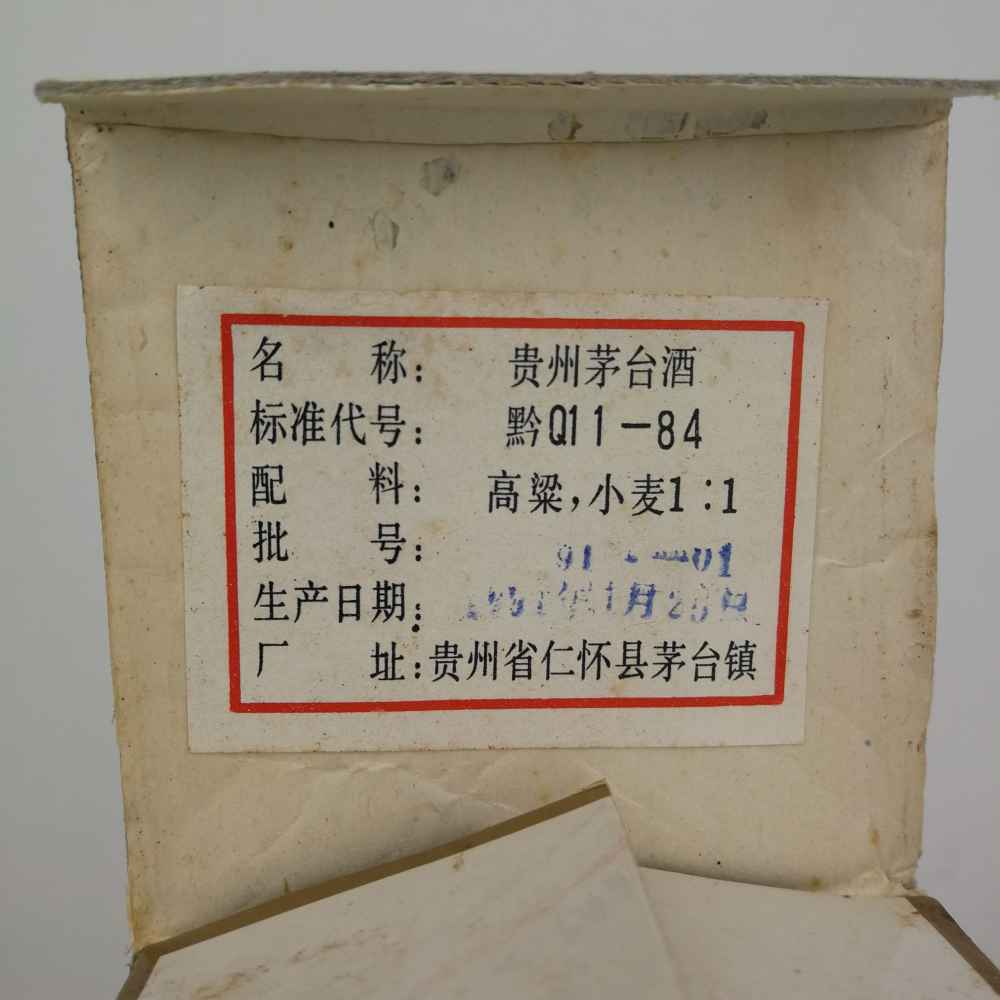 名 称： 贵州茅台酒
标准代号： 黔Q11-84
配 料： 高粱，小麦1：1
批 号： 91 -01
生产日期： 年1月2 日
厂 址：贵州省仁怀县茅台镇